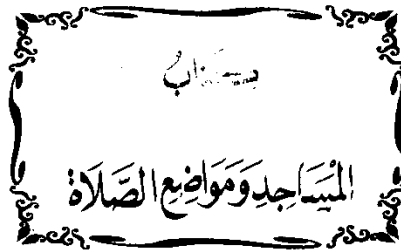 كِتَابُ
المَسَاجِدِ وَمَوَاضِعِ الصَّلَاة